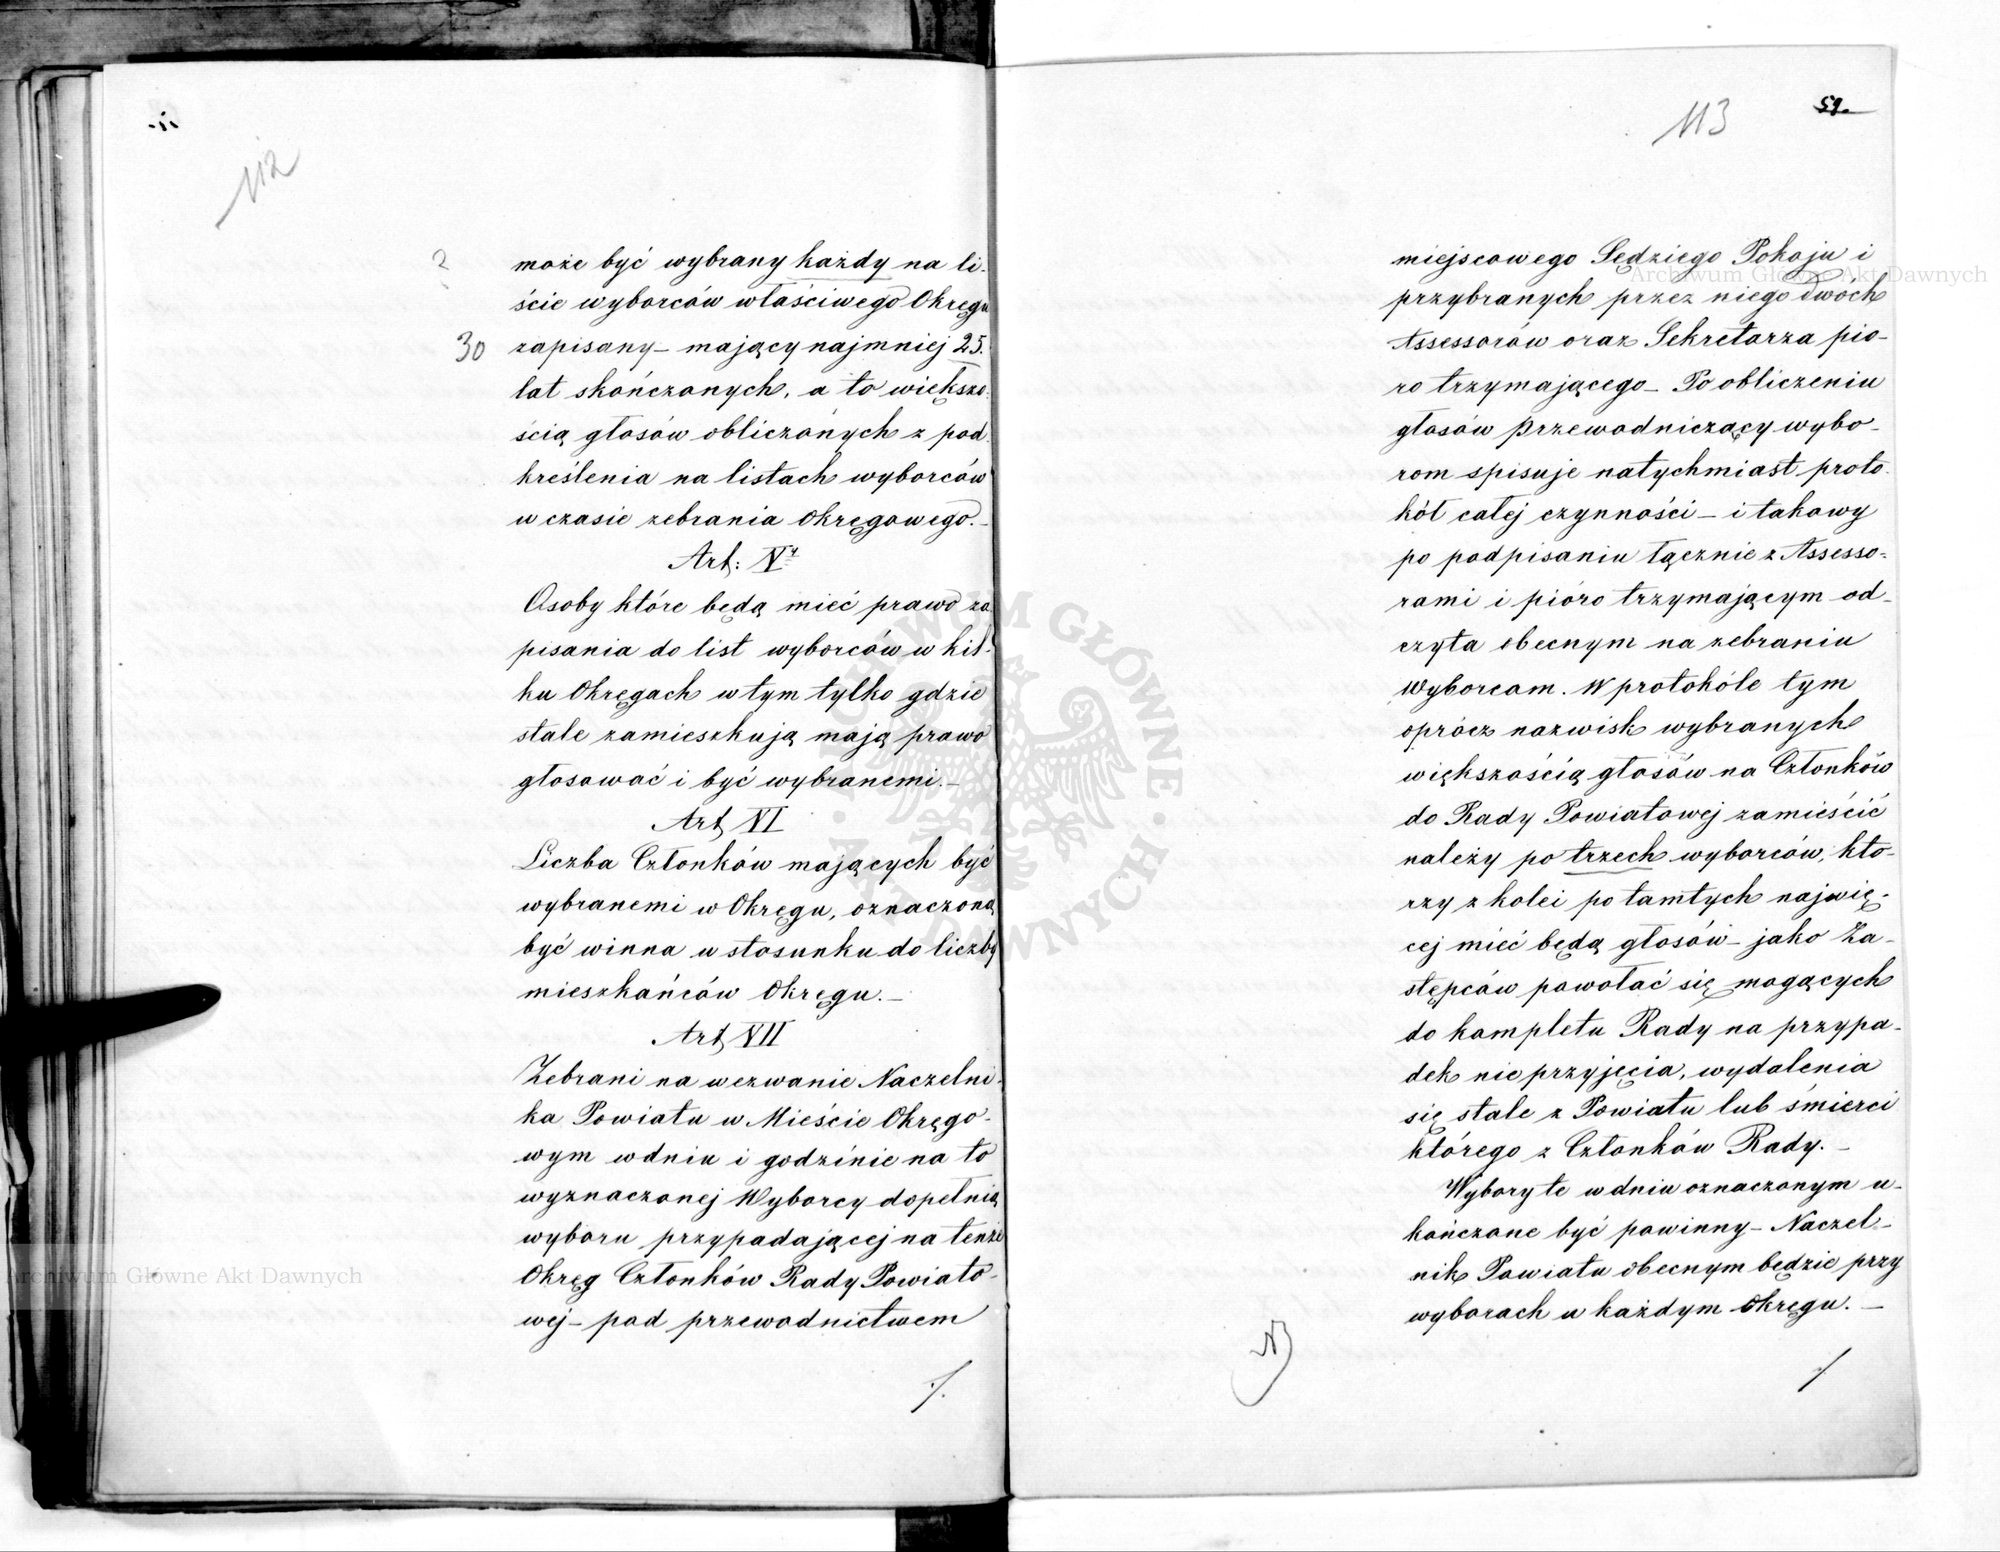 112
może być wybrany każdy na li-
ście wyborców właściwego Okręgu
30 zapisany – mający najmniej 25.
lat skończonych, a to większo-
ścią głosów obliczonych z pod
kreślenia na listach wyborców
w czasie zebrania Okręgowego. –
Art: V
Osoby które będą mieć prawo za
pisania do list wyborców w kil-
ku Okręgach w tym tylko gdzie
stale zamieszkują mają prawo
głosować i być wybranemi. –
Art VI
Liczba Członków mających być
wybranemi w Okręgu, oznaczoną
być winna w stosunku do liczby
mieszkańców Okręgu. –
Art VII
Zebrani na wezwanie Naczelni-
ka Powiatu w Mieście Okręgo-
wym w dniu i godzinie na to
wyznaczonej Wyborcy dopełnią
wyboru przypadającej na tenże
Okręg Członków Rady Powiato-
wej – pod przewodnictwem
./.
113
59.
miejscowego Sędziego Pokoju i
przybranych przez niego dwóch
Assessorów oraz Sekretarza pió-
ro trzymającego – Po obliczeniu
głosów Przewodniczący wybo-
rom spisuje natychmiast proto-
kół całej czynności – i takowy
po podpisaniu łącznie z Assesso-
rami i pióro trzymającym od-
czyta obecnym na zebraniu
Wyborcom. W protokóle tym
oprócz nazwisk wybranych
większością głosów na Członków
do Rady Powiatowej zamieścić
należy po trzech wyborców, któ-
rzy z kolei po tamtych najwię-
cej mieć będą głosów – jako Za-
stępców powołać się mogących
do kompletu Rady na przypa-
dek nieprzyjęcia, wydalenia
się stale z Powiatu lub śmierci
którego z Członków Rady. –
Wybory te w dniu oznaczonym u-
kończone być powinny – Naczel-
nik Powiatu obecnym będzie przy
wyborach w każdym Okręgu. –
/
Archiwum Główne Akt Dawnych
Archiwum Główne Akt Dawnych
ARCHIWUM GŁÓWNE AKT DAWNYCH